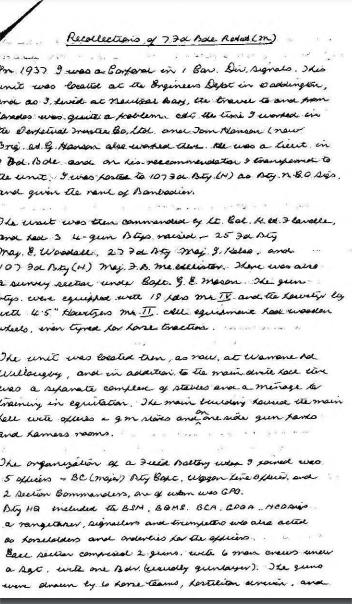 Recollections of 7 Fd Bde RAA (M)
In 1937 I was a Corporal in 1 Cav. Div. Signals. This
unit was located at the Engineers Depot in Paddington,
and as I lived at Neutral Bay, the travel to and from
parades was quite a problem. At the time I worked in
the Perpetual Trustee Co. Ltd. and Tom Hanson (now
Brig. ed. G. Hanson also worked there. He was a Lieut. in
7 Fd. Bde. and on his recommendation I transferred to
the unit. I was posted to 107 Fd Bty (H) as Bty N.C.O. Sigs.
and given the rank of Bombardier.
The unit was then commanded by Lt. Col. H. ed.
and had 3 4-gun Btys raised - 25 Fd Bty
Maj. E. Woodall, 27 Fd Bty Maj. J. and
107 Fd Bty (H) Maj. F. B. There was also
a survey section under Capt. G. E. Mason. The gun
btys. were equipped with 18 pdrs Mk IV and the howitzer bty
with 4.5" Howitzers Mk II. All equipment had wooden
wheels, iron tyred for horse traction.
The unit was located then, as now, at Warrane Rd
Willoughby, and in addition to the main drill hall there
was a separate complex of stables and a menage for
training in equitation. The main building housed the main
hall with offices & Q.M. stores and on one side gun parks
and harness rooms.
The organization of a Field Battery when I joined was
5 officers - BC (Major) Bty Capt, Waggon Line Officer, and
2 Section Commanders, one of whom was GPO.
Bty HQ included the BSM, BQMS, BCA, GPOA, NCO Sigs
a rangetaker, signallers and trumpeters who also acted
as horseholders and orderlies for the officers.
Each section comprised 2 guns, with 6 man crews under
a Sgt. with one Bdr (usually gunlayer). The guns
were drawn by 6 horse teams, postilion driven, and